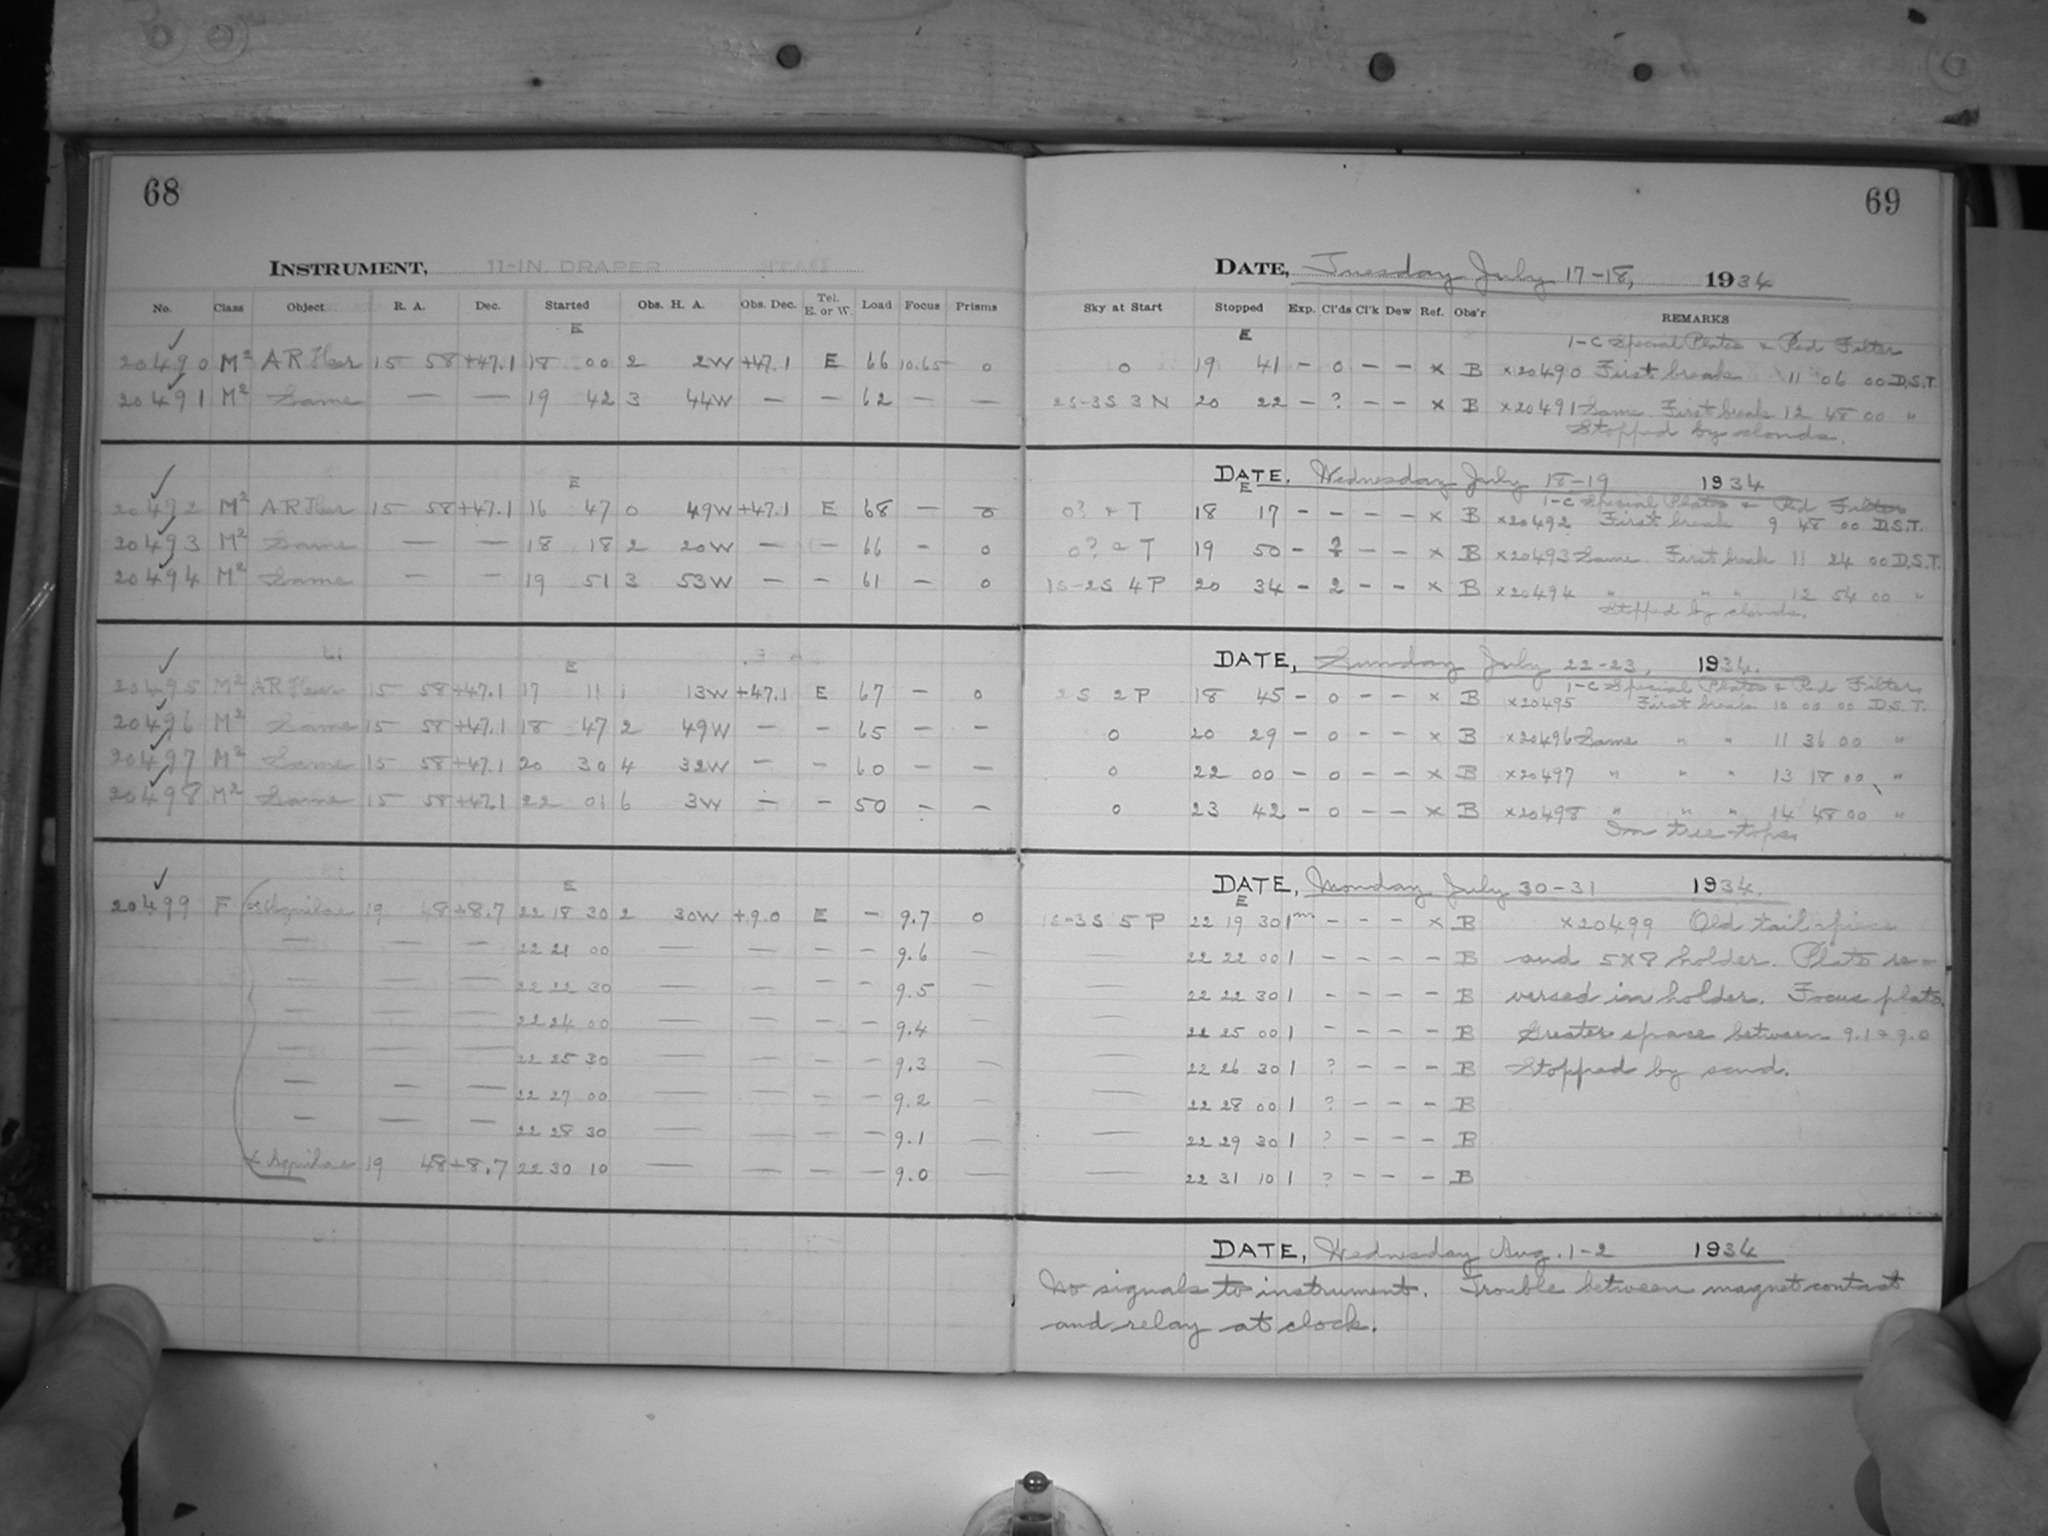 68
INSTRUMENT, 11-IN. DRAPER
No. Class Object R. A. Dec. Started Obs. H. A. Obs. Dec. Tel. E. or W. Load Focus Prisms
E
20490 M² AR Her 15 58 +47.1 18 00 2 2W +47.1 E 66 10.65 0
20491 M² Same — — 19 42 3 44W — — 62 — —
E
20492 M² AR Her 15 58 +47.1 16 47 0 49W +47.1 E 68 — 0
20493 M² Same — — 18 18 2 20W — — 66 — 0
20494 M² Same — — 19 51 3 53W — — 61 — 0
E
20495 M² AR Her 15 58 +47.1 17 11 1 13W +47.1 E 67 — 0
20496 M² Same 15 58 +47.1 18 47 2 49W — — 65 — —
20497 M² Same 15 58 +47.1 20 30 4 32W — — 60 — —
20498 M² Same 15 58 +47.1 22 01 6 3W — — 50 — —
E
20499 F α Aquilae 19 48 +8.7 22 18 30 2 30W +9.0 E — 9.7 0
— — — 22 21 00 — — — — 9.6 —
— — — 22 22 30 — — — — 9.5 —
— — — 22 24 00 — — — — 9.4 —
— — — 22 25 30 — — — — 9.3 —
— — — 22 27 00 — — — — 9.2 —
— — — 22 28 30 — — — — 9.1 —
α Aquilae 19 48 +8.7 22 30 10 — — — — 9.0 —
69
DATE, Tuesday July 17-18, 1934
Sky at Start Stopped Exp. Cl'ds Cl'k Dew Ref. Obs'r REMARKS
E 1-C Special Plates & Red Filter
0 19 41 — 0 — — x B x20490 First break 11 06 00 D.S.T.
2S-3S 3N 20 22 — ? — — x B x20491 Same. First break 12 48 00 "
Stopped by clouds.
DATE, Wednesday July 18-19 1934
E 1-C Special Plates & Red Filter
0? & T 18 17 — — — — x B x20492 First break 9 48 00 D.S.T.
0? & T 19 50 — ? — — x B x20493 Same. First break 11 24 00 D.S.T.
1S-2S 4P 20 34 — 2 — — x B x20494 " " " 12 54 00 "
Stopped by clouds.
DATE, Sunday July 22-23, 1934.
1-C Special Plates & Red Filters
2S 2P 18 45 — 0 — — x B x20495 First break 10 00 00 D.S.T.
0 20 29 — 0 — — x B x20496 Same " " 11 36 00 "
0 22 00 — 0 — — x B x20497 " " " 13 18 00 "
0 23 42 — 0 — — x B x20498 " " " 14 48 00 "
In tree-tops
DATE, Monday July 30-31 1934.
E
1S-3S 5P 22 19 30 1m — — — x B x20499 Old tail-piece
— 22 22 00 1 — — — — B and 5x8 holder. Plate re-
— 22 22 30 1 — — — — B versed in holder. Focus plate.
— 22 25 00 1 — — — — B Greater space between 9.1 & 9.0
— 22 26 30 1 ? — — — B Stopped by sand.
— 22 28 00 1 ? — — — B
— 22 29 30 1 ? — — — B
— 22 31 10 1 ? — — — B
DATE, Wednesday Aug. 1-2 1934
No signals to instrument. Trouble between magnet contact
and relay at clock.